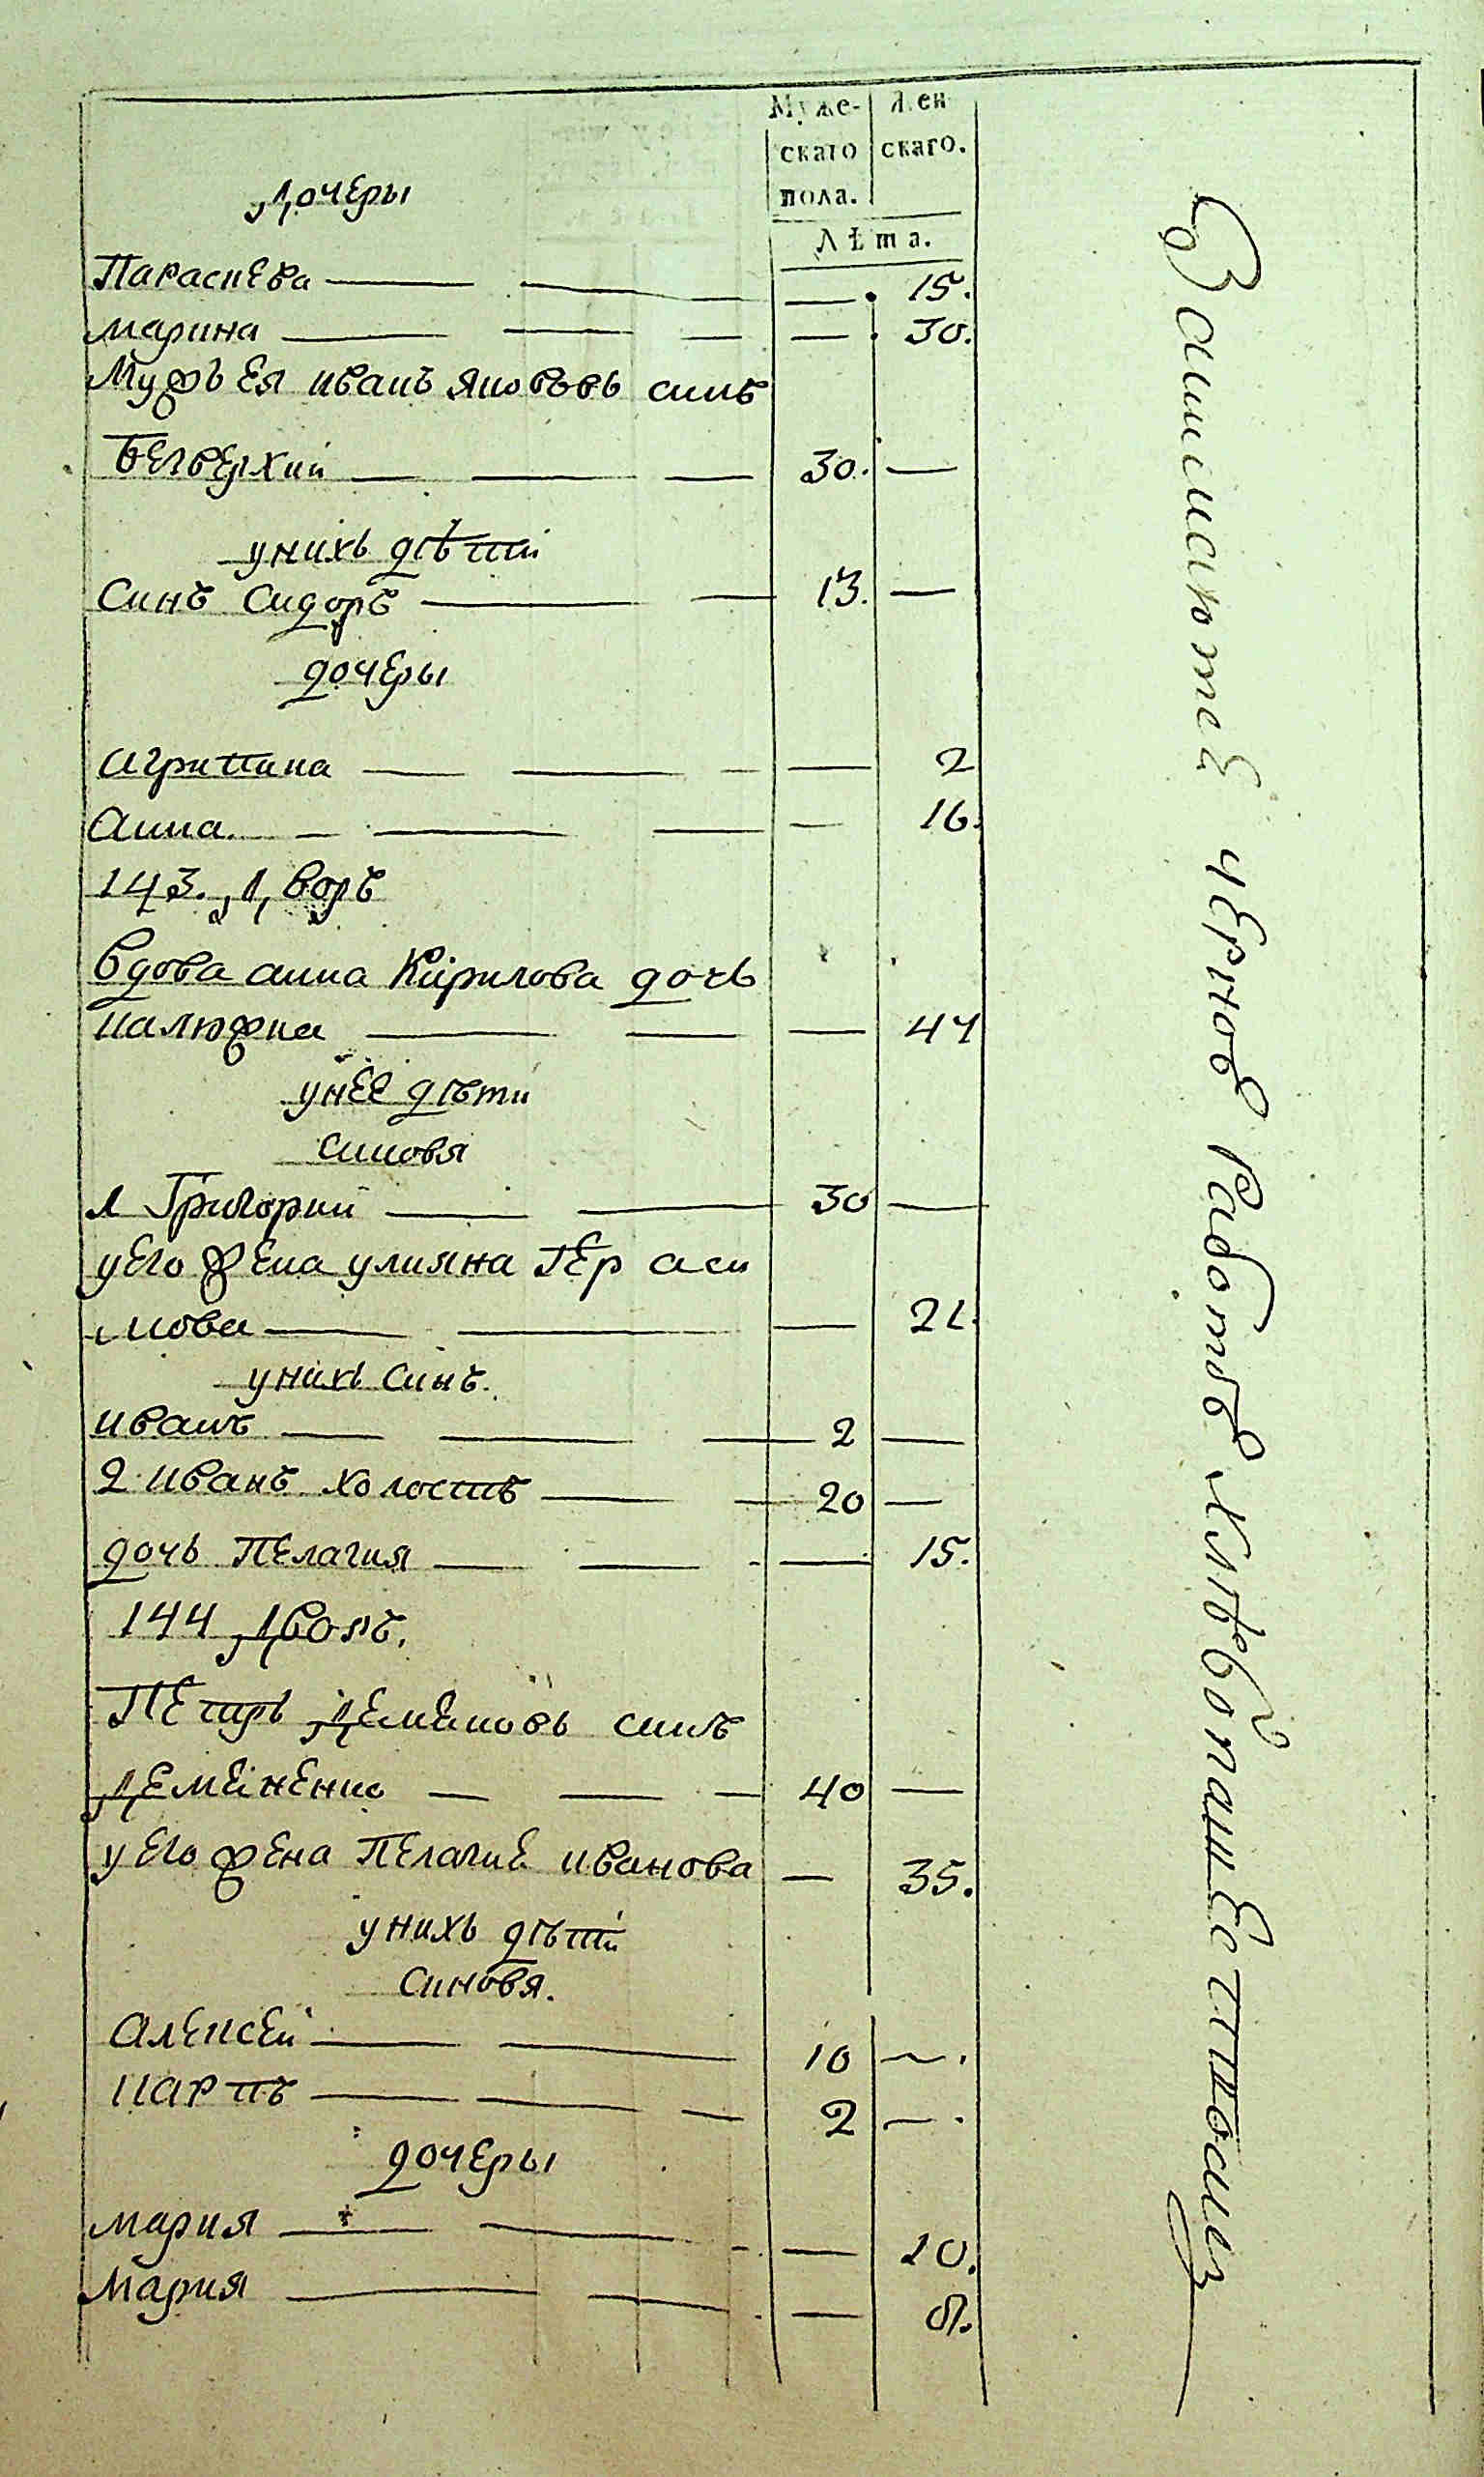 Муже-
скаго
пола.
Жен
скаго.
Лѣта.
Дочеры
Параскева — 15.
марина — 30.
Мужъ Ея иванъ яковъвъ синъ
Безверхий 30. —
унихъ дѣти
Синъ Сидоръ 13. —
дочеры
агрипина — 2
Анна — 16.
143. Дворъ
Вдова анна Кирилова дочь
калюжна — 44
унеє дѣти
синовя
1 Григории 30 —
уєго жена улияна Гєраси
мова — 21.
унихъ синъ.
иванъ 2 —
2 иванъ холостъ 20 —
дочь Пелагия — 15.
144 Дворъ.
Петръ Деменовъ синъ
Деменєнко 40 —
уєго жена Пелагиє иванова — 35.
унихъ дѣти
синовя.
Алексєй 10 —
карпъ 2 —
дочеры
мария — 10.
Мария — 8.
Занимаютсе черною работою хлѣбопашествомъ